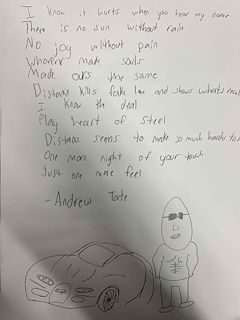 I know it hurts when you hear my name
There is no sun without rain
No joy without pain
Whoever made souls
Made ours the same
Distance kills fake love and shows what's real
I know the deal
Play heart of steel
Distance seems to make so much harder to
One more night of your touch
Just one more feel
-Andrew Tate